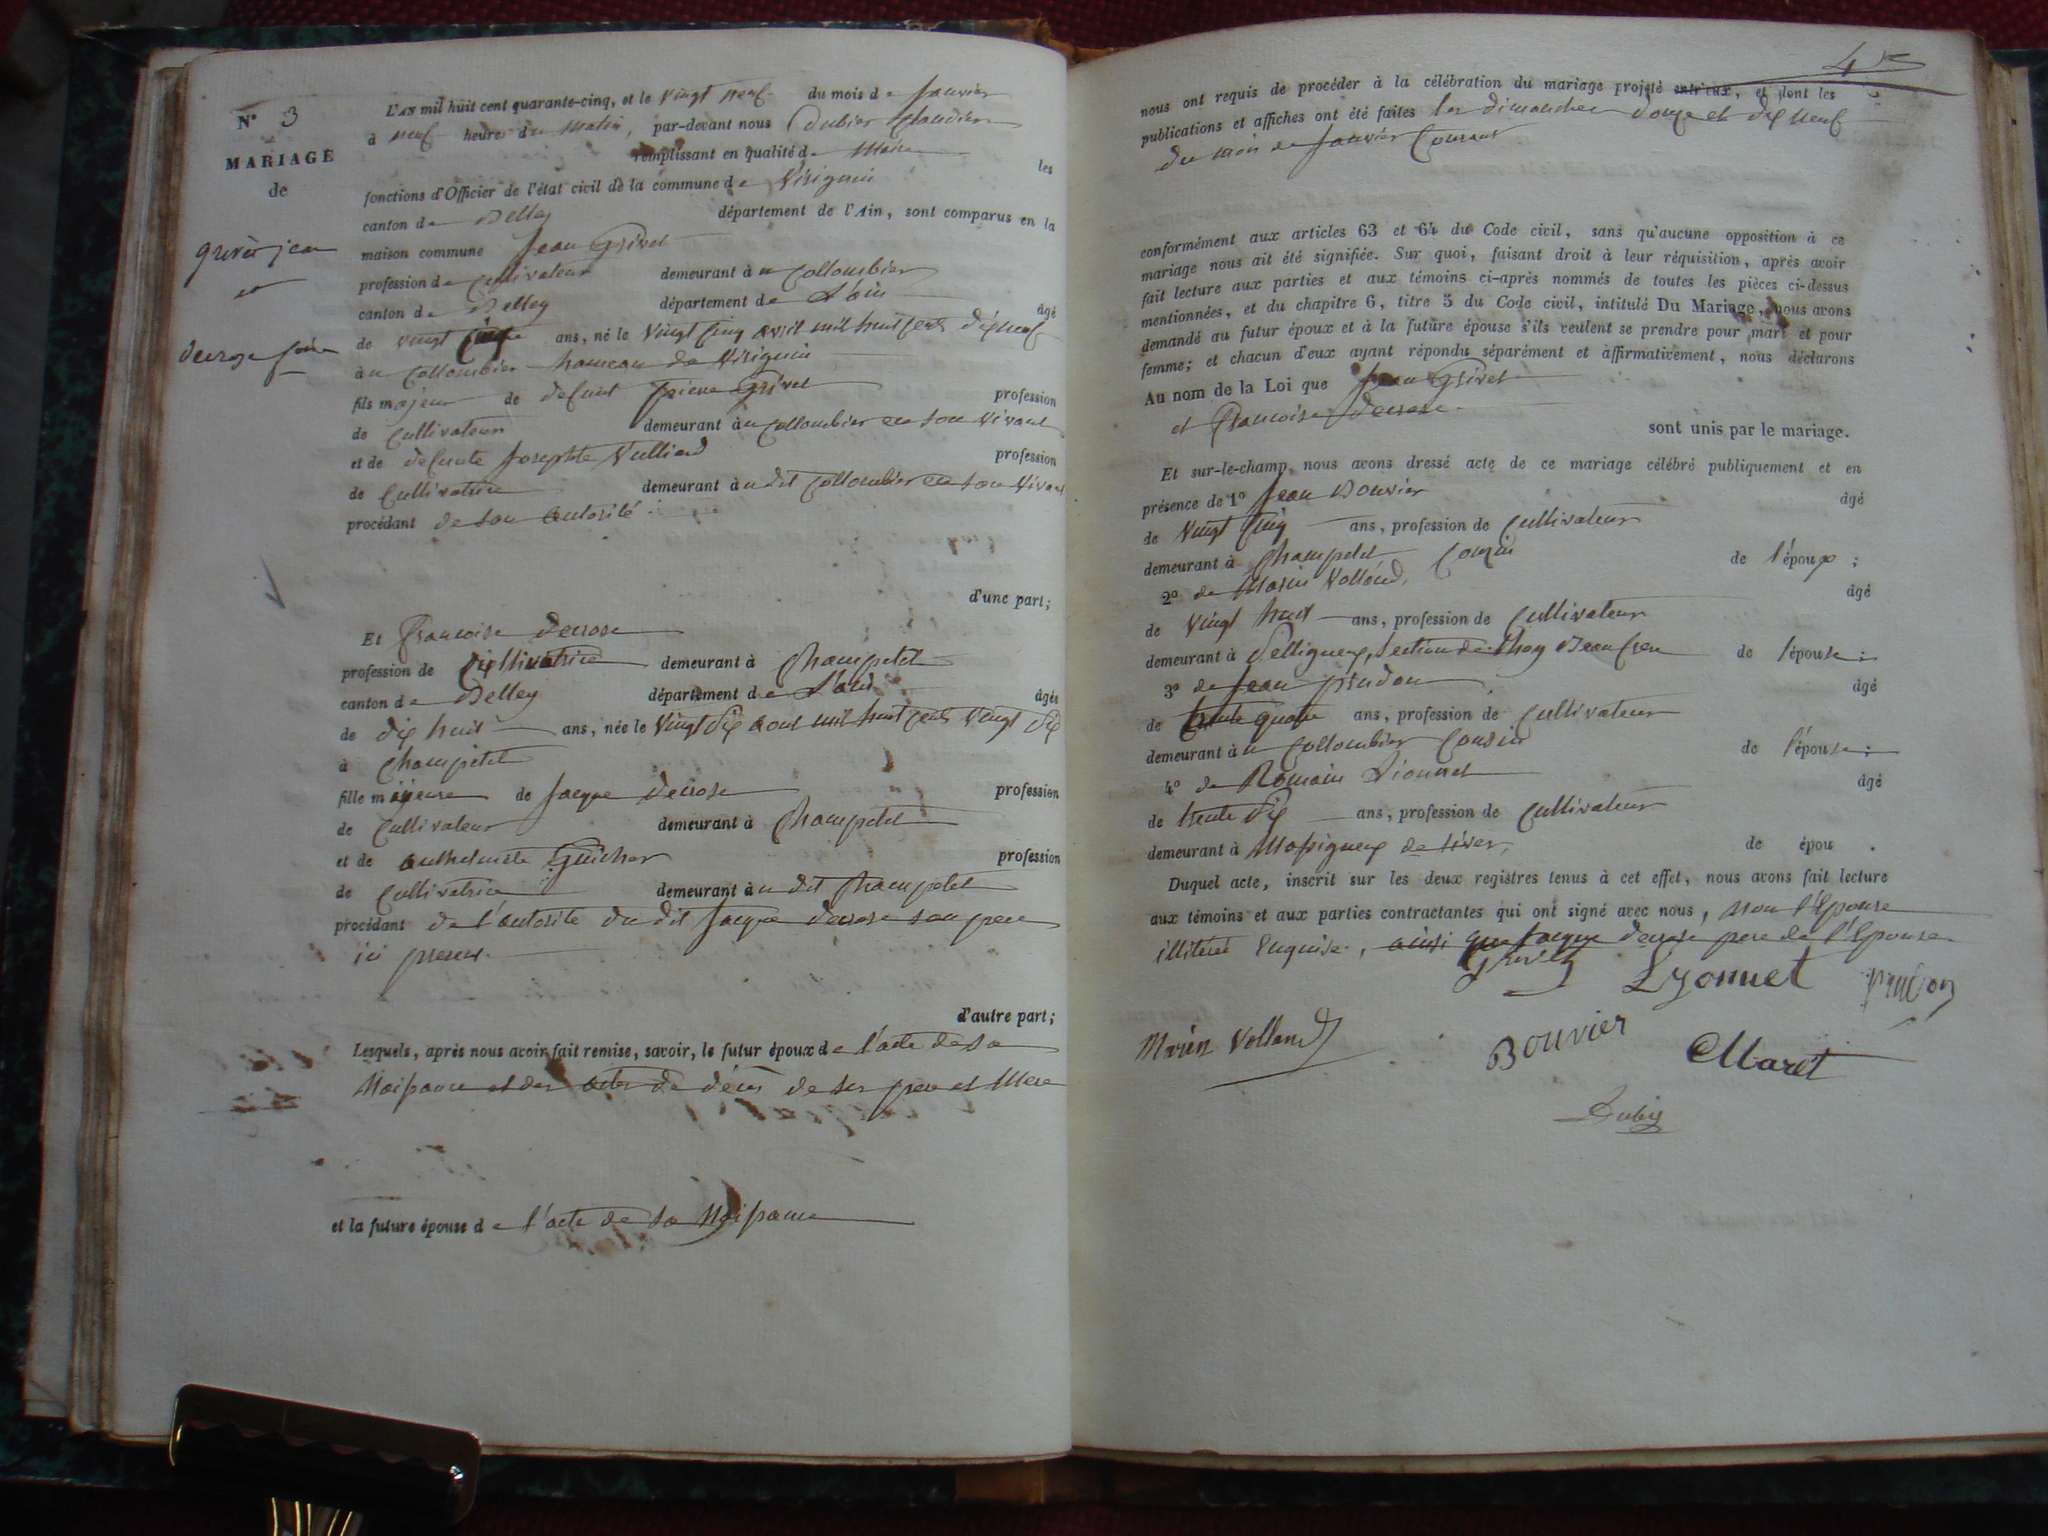 N° 3
MARIAGE
de
grivet jean
et
decrose
L'AN mil huit cent quarante-cinq, et le vingt neuf du mois de Janvier
à neuf heures du Matin, par-devant nous Dubier Claudier
remplissant en qualité de Maire les
fonctions d'Officier de l'état civil de la commune de Virignin
canton de Belley département de l'Ain, sont comparus en la
maison commune Jean Grivet
profession de Cultivateur demeurant à u Collombier
canton de Belley département de L'ain âgé
de vingt cinq ans, né le vingt cinq avril mil huit cent dix neuf
à u Collombier hameau de Virignin
fils majeur de defunt pierre Grivet profession
de Cultivateur demeurant à u Collombier en son vivant
et de defunte Josephte Vulliard profession
de Cultivatrice demeurant à u dit Collombier en son vivant
procédant de son autorité
d'une part;
Et Francoise decrose
profession de Cultivatrice demeurant à Champetel
canton de Belley département de L'ain âgée
de dix huit ans, née le vingt six aout mil huit cent vingt six
à Champetel
fille mineure de Jacque decrose profession
de Cultivateur demeurant à Champetel
et de anthelmette Guicher profession
de Cultivatrice demeurant à u dit Champetel
procédant de l'autorité du dit Jacque decrose son pere
ici present.
d'autre part;
Lesquels, après nous avoir fait remise, savoir, le futur époux de l'acte de sa
Naissance et des actes de décès de ses pere et Mere
et la future épouse de l'acte de sa Naissance
45
nous ont requis de procéder à la célébration du mariage projeté entr'eux, et dont les
publications et affiches ont été faites les dimanches douze et dix neuf
du mois de Janvier Courant
conformément aux articles 63 et 64 du Code civil, sans qu'aucune opposition à ce
mariage nous ait été signifiée. Sur quoi, faisant droit à leur réquisition, après avoir
fait lecture aux parties et aux témoins ci-après nommés de toutes les pièces ci-dessus
mentionnées, et du chapitre 6, titre 5 du Code civil, intitulé Du Mariage, nous avons
demandé au futur époux et à la future épouse s'ils veulent se prendre pour mari et pour
femme; et chacun d'eux ayant répondu séparément et affirmativement, nous déclarons
Au nom de la Loi que Jean Grivet
et Francoise decrose
sont unis par le mariage.
Et sur-le-champ, nous avons dressé acte de ce mariage célébré publiquement et en
présence de 1° Jean Bouvier âgé
de vingt cinq ans, profession de Cultivateur
demeurant à Champetel Cousin de l'époux;
2° de Marin Volland, âgé
de vingt huit ans, profession de Cultivateur
demeurant à Pelligneux, section de de l'épouse;
3° de Jean prudon âgé
de trente quatre ans, profession de Cultivateur
demeurant à u Collombier Cousin de l'épouse;
4° de Romain Lionnet âgé
de trente six ans, profession de Cultivateur
demeurant à Massigneux de rives, de épou .
Duquel acte, inscrit sur les deux registres tenus à cet effet, nous avons fait lecture
aux témoins et aux parties contractantes qui ont signé avec nous, non l'Epouse
illiteré Enquise, ainsi que Jacque decrose pere de l'Epouse
Grivet Lyonnet prudon
Marin Volland Bouvier Maret
Dubier